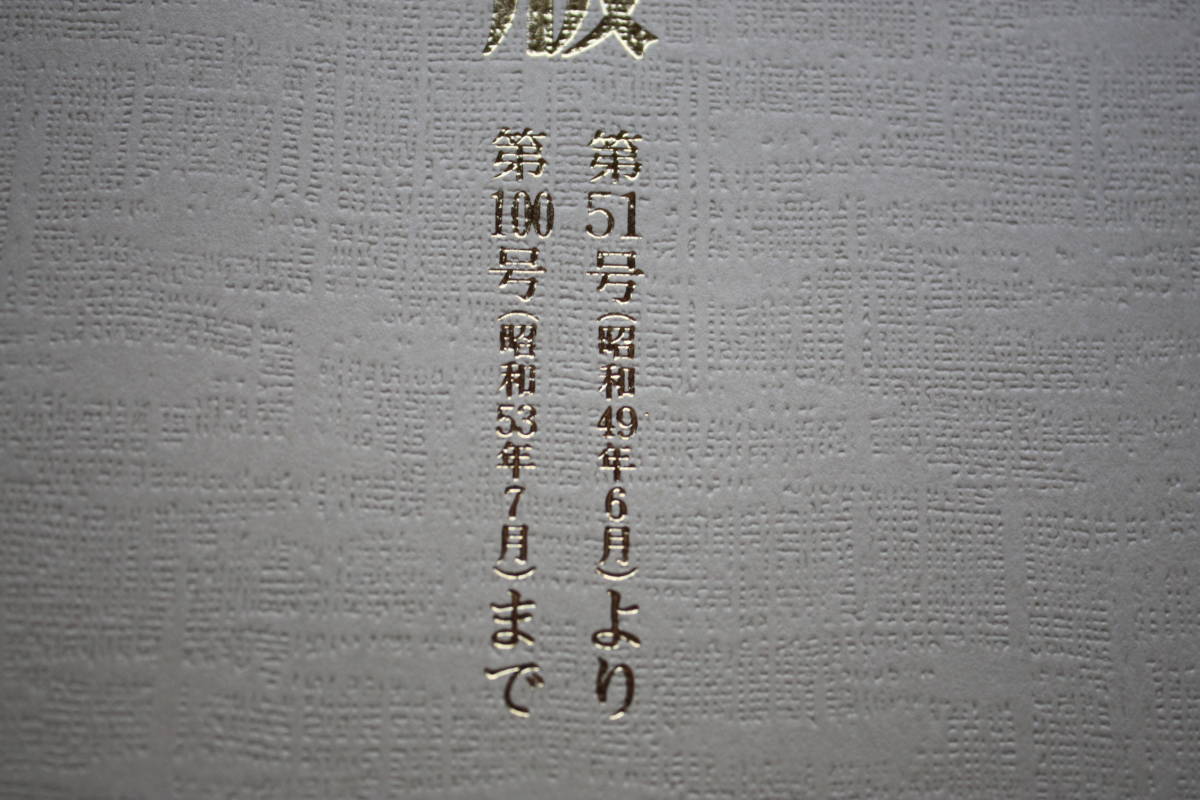 版
第51号(昭和49年6月)より
第100号(昭和53年7月)まで